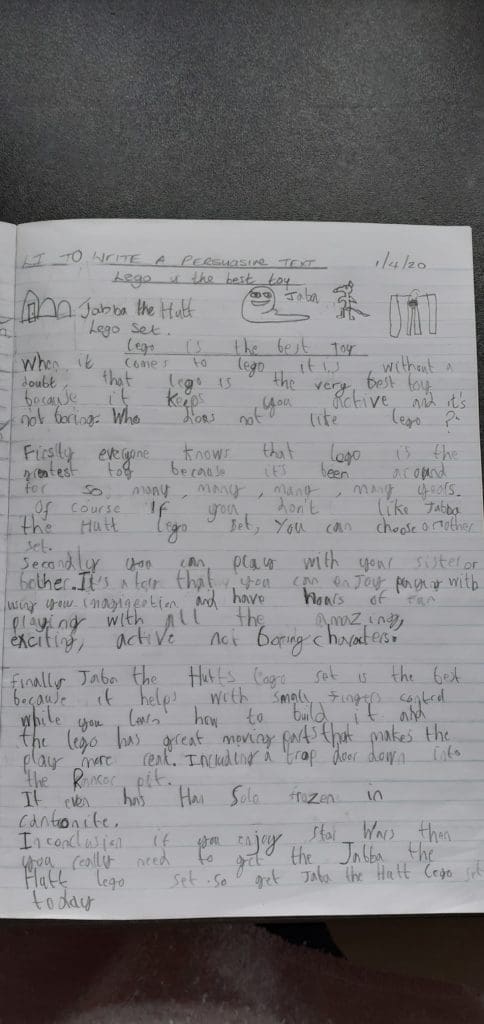 LI TO WRITE A PERSUASIVE TEXT 1/4/20
Lego is the best toy
Jabba the Hutt
Jaba
Lego Set.
Lego is the best Toy
When it comes to lego it is without a
doubt, that lego is the very best toy
because it keeps you active and it's
not boring. Who does not like lego ?
Firstly everyone knows that Lego is the
greatest toy because it's been around
for so many, many, many, many years.
Of course if you don't like Jabba
the Hutt lego Set, You can choose another
set.
Secondly you can play with your sister or
bother. It's a toy that you can enJoy playing with
using your imagination and have hours of fun
playing with all the amazing,
exciting, active not boring characters.
Finally Jaba the Hutts Lego set is the best
because it helps with small fingers control
while you learn how to build it and
the lego has great moving parts that makes the
play more real. Including a trap door down into
the Rancor pit.
It even has Han Solo frozen in
cantonite.
In conclusion if you enjoy Star Wars then
you really need to get the Jabba the
Hutt lego set. so get Jaba the Hutt Lego set
today